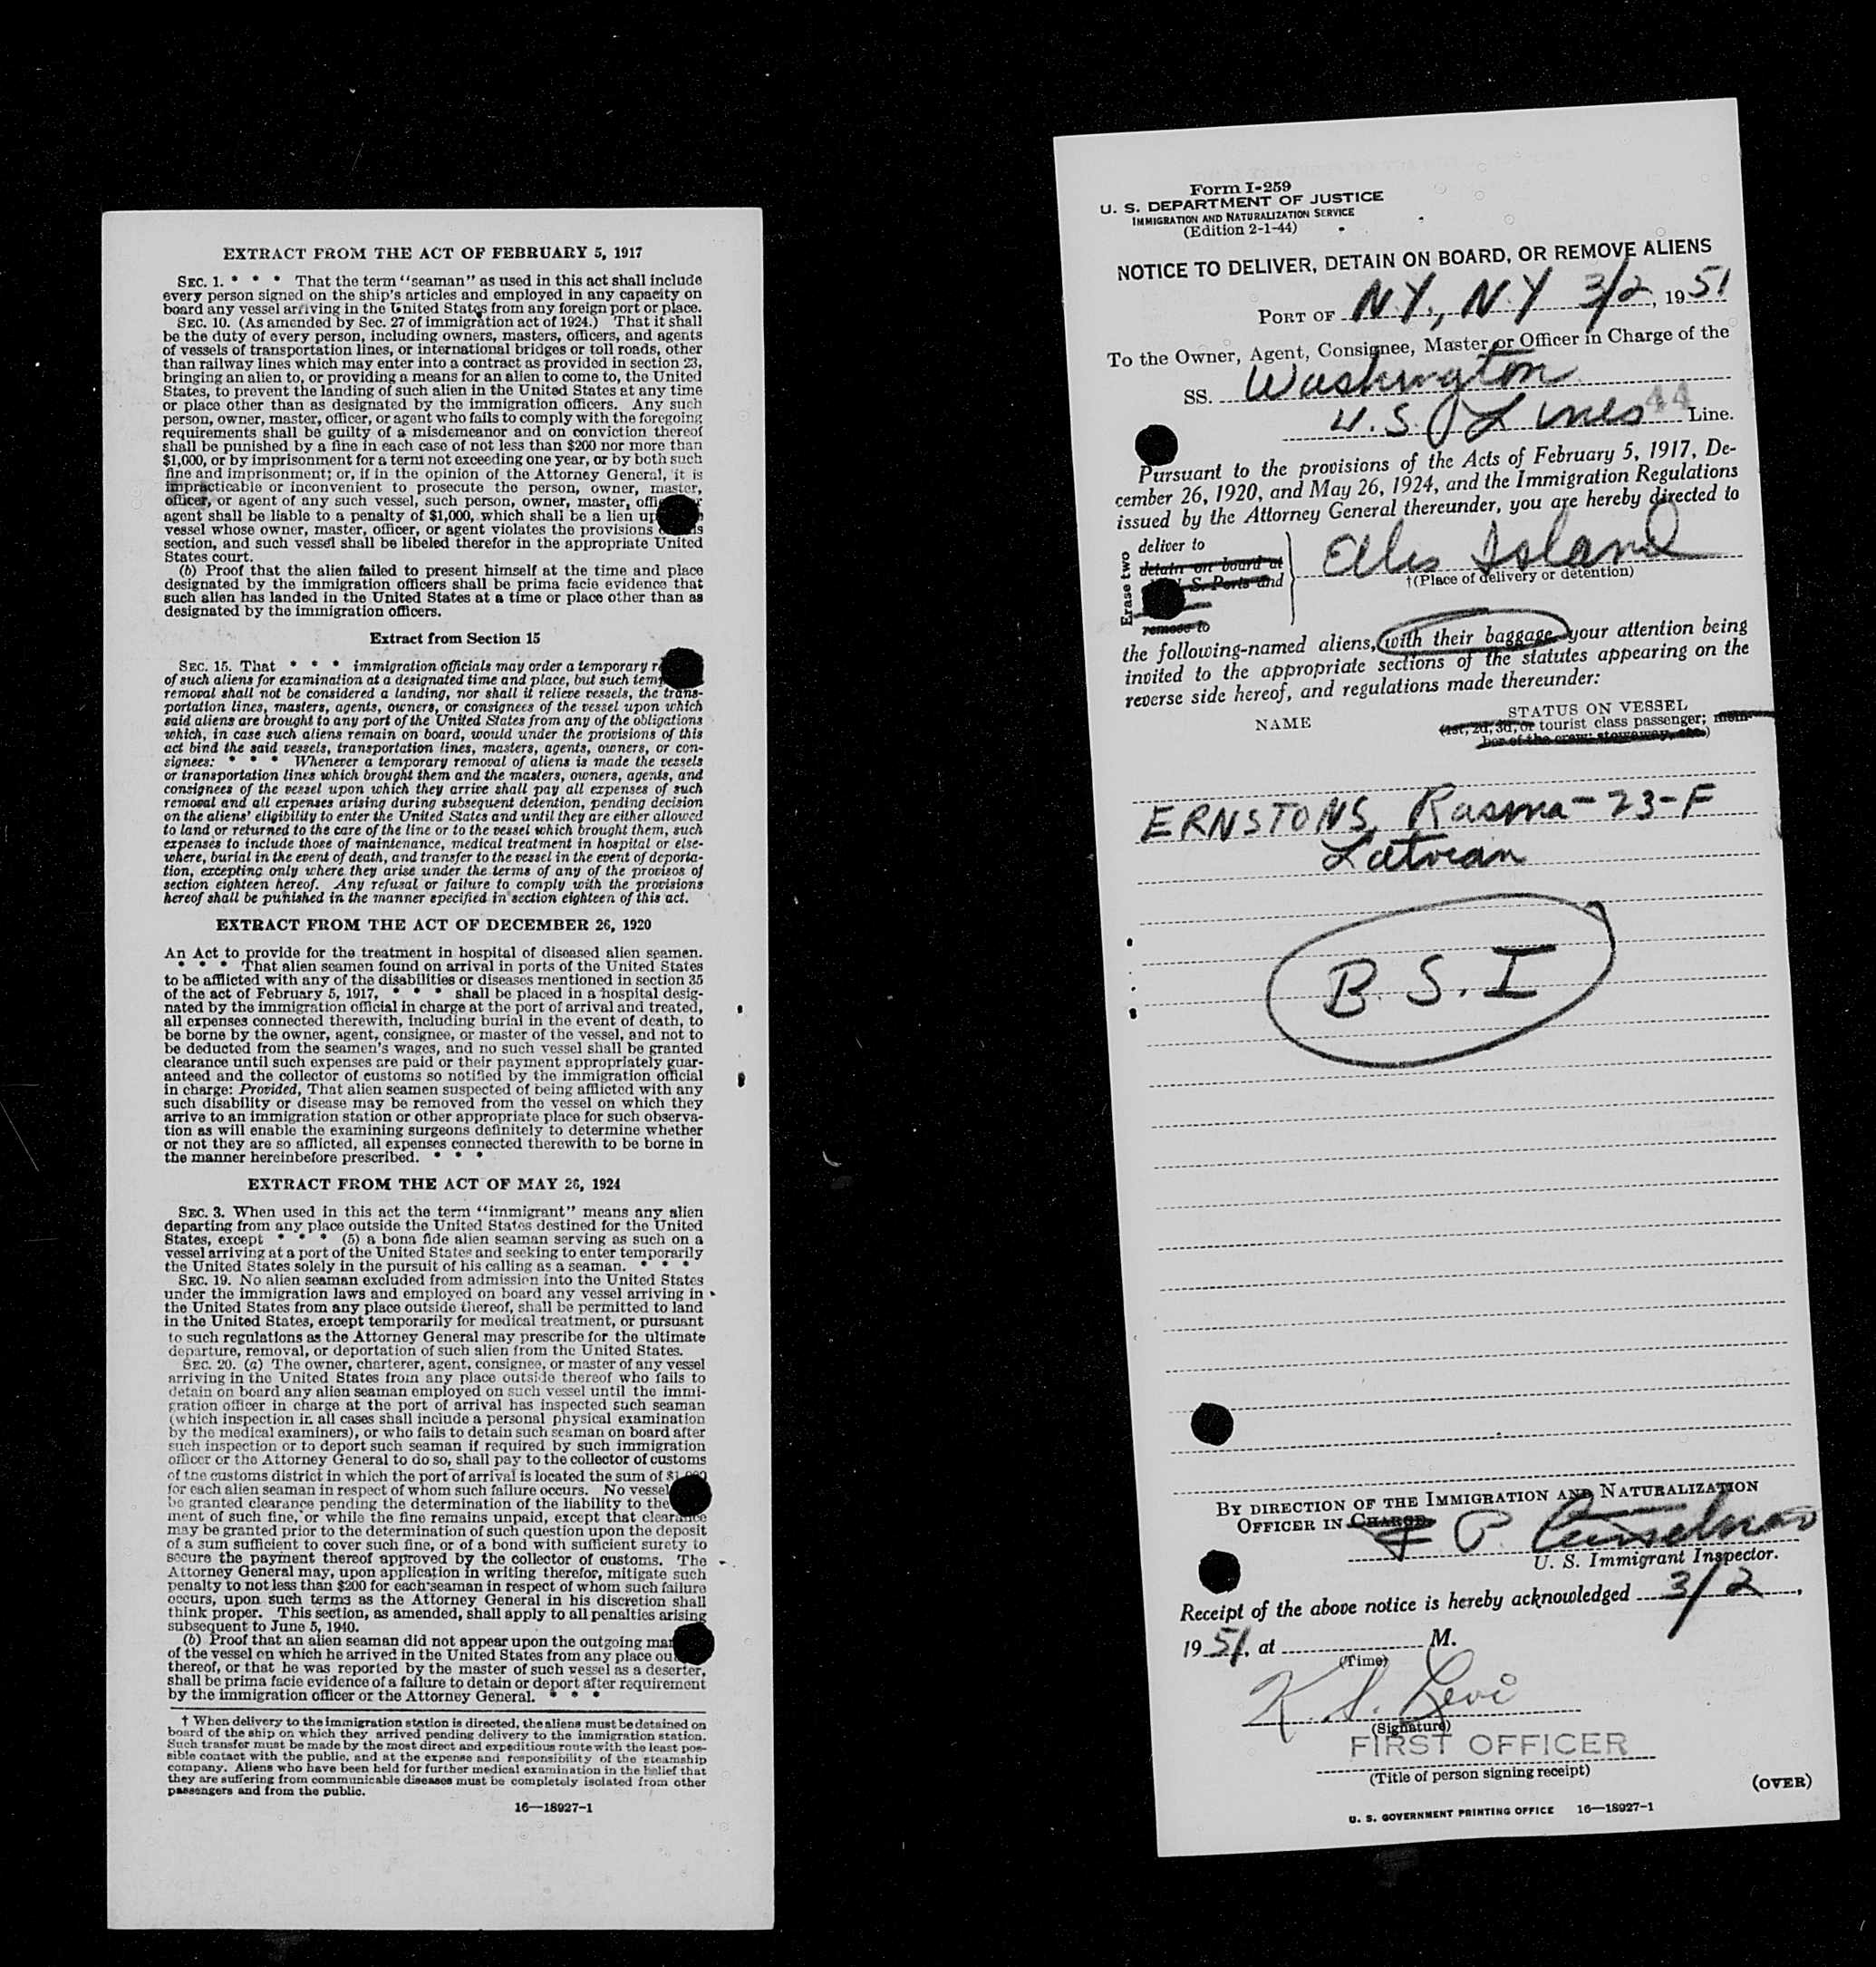 EXTRACT FROM THE ACT OF FEBRUARY 5, 1917
SEC. 1. * * * That the term "seaman" as used in this act shall include
every person signed on the ship's articles and employed in any capacity on
board any vessel arriving in the United States from any foreign port or place.
SEC. 10. (As amended by Sec. 27 of immigration act of 1924.) That it shall
be the duty of every person, including owners, masters, officers, and agents
of vessels of transportation lines, or international bridges or toll roads, other
than railway lines which may enter into a contract as provided in section 23,
bringing an alien to, or providing a means for an alien to come to, the United
States, to prevent the landing of such alien in the United States at any time
or place other than as designated by the immigration officers. Any such
person, owner, master, officer, or agent who fails to comply with the foregoing
requirements shall be guilty of a misdemeanor and on conviction thereof
shall be punished by a fine in each case of not less than $200 nor more than
$1,000, or by imprisonment for a term not exceeding one year, or by both such
fine and imprisonment; or, if in the opinion of the Attorney General, it is
impracticable or inconvenient to prosecute the person, owner, master,
officer, or agent of any such vessel, such person, owner, master,
agent shall be liable to a penalty of $1,000, which shall be a lien
vessel whose owner, master, officer, or agent violates the provisions
section, and such vessel shall be libeled therefor in the appropriate United
States court.
(b) Proof that the alien failed to present himself at the time and place
designated by the immigration officers shall be prima facie evidence that
such alien has landed in the United States at a time or place other than as
designated by the immigration officers.
Extract from Section 15
SEC. 15. That * * * immigration officials may order a temporary
of such aliens for examination at a designated time and place, but such
removal shall not be considered a landing, nor shall it relieve vessels, the trans-
portation lines, masters, agents, owners, or consignees of the vessel upon which
said aliens are brought to any port of the United States from any of the obligations
which, in case such aliens remain on board, would under the provisions of this
act bind the said vessels, transportation lines, masters, agents, owners, or con-
signees: * * * Whenever a temporary removal of aliens is made the vessels
or transportation lines which brought them and the masters, owners, agents, and
consignees of the vessel upon which they arrive shall pay all expenses of such
removal and all expenses arising during subsequent detention, pending decision
on the aliens' eligibility to enter the United States and until they are either allowed
to land or returned to the care of the line or to the vessel which brought them, such
expenses to include those of maintenance, medical treatment in hospital or else-
where, burial in the event of death, and transfer to the vessel in the event of deporta-
tion, excepting only where they arise under the terms of any of the provisos of
section eighteen hereof. Any refusal or failure to comply with the provisions
hereof shall be punished in the manner specified in section eighteen of this act.
EXTRACT FROM THE ACT OF DECEMBER 26, 1920
An Act to provide for the treatment in hospital of diseased alien seamen.
* * * That alien seamen found on arrival in ports of the United States
to be afflicted with any of the disabilities or diseases mentioned in section 35
of the act of February 5, 1917, * * * shall be placed in a hospital desig-
nated by the immigration official in charge at the port of arrival and treated,
all expenses connected therewith, including burial in the event of death, to
be borne by the owner, agent, consignee, or master of the vessel, and not to
be deducted from the seamen's wages, and no such vessel shall be granted
clearance until such expenses are paid or their payment appropriately guar-
anteed and the collector of customs so notified by the immigration official
in charge: Provided, That alien seamen suspected of being afflicted with any
such disability or disease may be removed from the vessel on which they
arrive to an immigration station or other appropriate place for such observa-
tion as will enable the examining surgeons definitely to determine whether
or not they are so afflicted, all expenses connected therewith to be borne in
the manner hereinbefore prescribed. * * *
EXTRACT FROM THE ACT OF MAY 26, 1924
SEC. 3. When used in this act the term "immigrant" means any alien
departing from any place outside the United States destined for the United
States, except * * * (5) a bona fide alien seaman serving as such on a
vessel arriving at a port of the United States and seeking to enter temporarily
the United States solely in the pursuit of his calling as a seaman. * * *
SEC. 19. No alien seaman excluded from admission into the United States
under the immigration laws and employed on board any vessel arriving in
the United States from any place outside thereof, shall be permitted to land
in the United States, except temporarily for medical treatment, or pursuant
to such regulations as the Attorney General may prescribe for the ultimate
departure, removal, or deportation of such alien from the United States.
SEC. 20. (a) The owner, charterer, agent, consignee, or master of any vessel
arriving in the United States from any place outside thereof who fails to
detain on board any alien seaman employed on such vessel until the immi-
gration officer in charge at the port of arrival has inspected such seaman
(which inspection in all cases shall include a personal physical examination
by the medical examiners), or who fails to detain such seaman on board after
such inspection or to deport such seaman if required by such immigration
officer or the Attorney General to do so, shall pay to the collector of customs
of the customs district in which the port of arrival is located the sum of $1,000
for each alien seaman in respect of whom such failure occurs. No vessel
be granted clearance pending the determination of the liability to the
ment of such fine, or while the fine remains unpaid, except that clearance
may be granted prior to the determination of such question upon the deposit
of a sum sufficient to cover such fine, or of a bond with sufficient surety to
secure the payment thereof approved by the collector of customs. The
Attorney General may, upon application in writing therefor, mitigate such
penalty to not less than $200 for each seaman in respect of whom such failure
occurs, upon such terms as the Attorney General in his discretion shall
think proper. This section, as amended, shall apply to all penalties arising
subsequent to June 5, 1940.
(b) Proof that an alien seaman did not appear upon the outgoing
of the vessel on which he arrived in the United States from any place
thereof, or that he was reported by the master of such vessel as a deserter,
shall be prima facie evidence of a failure to detain or deport after requirement
by the immigration officer or the Attorney General. * * *
† When delivery to the immigration station is directed, the aliens must be detained on
board of the ship on which they arrived pending delivery to the immigration station.
Such transfer must be made by the most direct and expeditious route with the least pos-
sible contact with the public, and at the expense and responsibility of the steamship
company. Aliens who have been held for further medical examination in the belief that
they are suffering from communicable diseases must be completely isolated from other
passengers and from the public.
16—18927-1
Form I-259
U. S. DEPARTMENT OF JUSTICE
IMMIGRATION AND NATURALIZATION SERVICE
(Edition 2-1-44)
NOTICE TO DELIVER, DETAIN ON BOARD, OR REMOVE ALIENS
PORT OF N.Y., N.Y 3/2, 1951
To the Owner, Agent, Consignee, Master or Officer in Charge of the
SS. Washington
U.S. Lines 44 Line.
Pursuant to the provisions of the Acts of February 5, 1917, De-
cember 26, 1920, and May 26, 1924, and the Immigration Regulations
issued by the Attorney General thereunder, you are hereby directed to
Erase two
deliver to
detain on board at
U. S. Ports and
remove to
Ellis Island
†(Place of delivery or detention)
the following-named aliens, with their baggage, your attention being
invited to the appropriate sections of the statutes appearing on the
reverse side hereof, and regulations made thereunder:
NAME
STATUS ON VESSEL
(1st, 2d, 3d, or tourist class passenger; mem-
ber of the crew; stowaway, etc.)
ERNSTONS, Rasma-23-F
Latvian
B.S.I
BY DIRECTION OF THE IMMIGRATION AND NATURALIZATION
OFFICER IN CHARGE.
U. S. Immigrant Inspector.
Receipt of the above notice is hereby acknowledged 3/2,
1951, at M.
(Time)
K. S. Levi
(Signature)
FIRST OFFICER
(Title of person signing receipt)
(OVER)
U. S. GOVERNMENT PRINTING OFFICE 16—18927-1